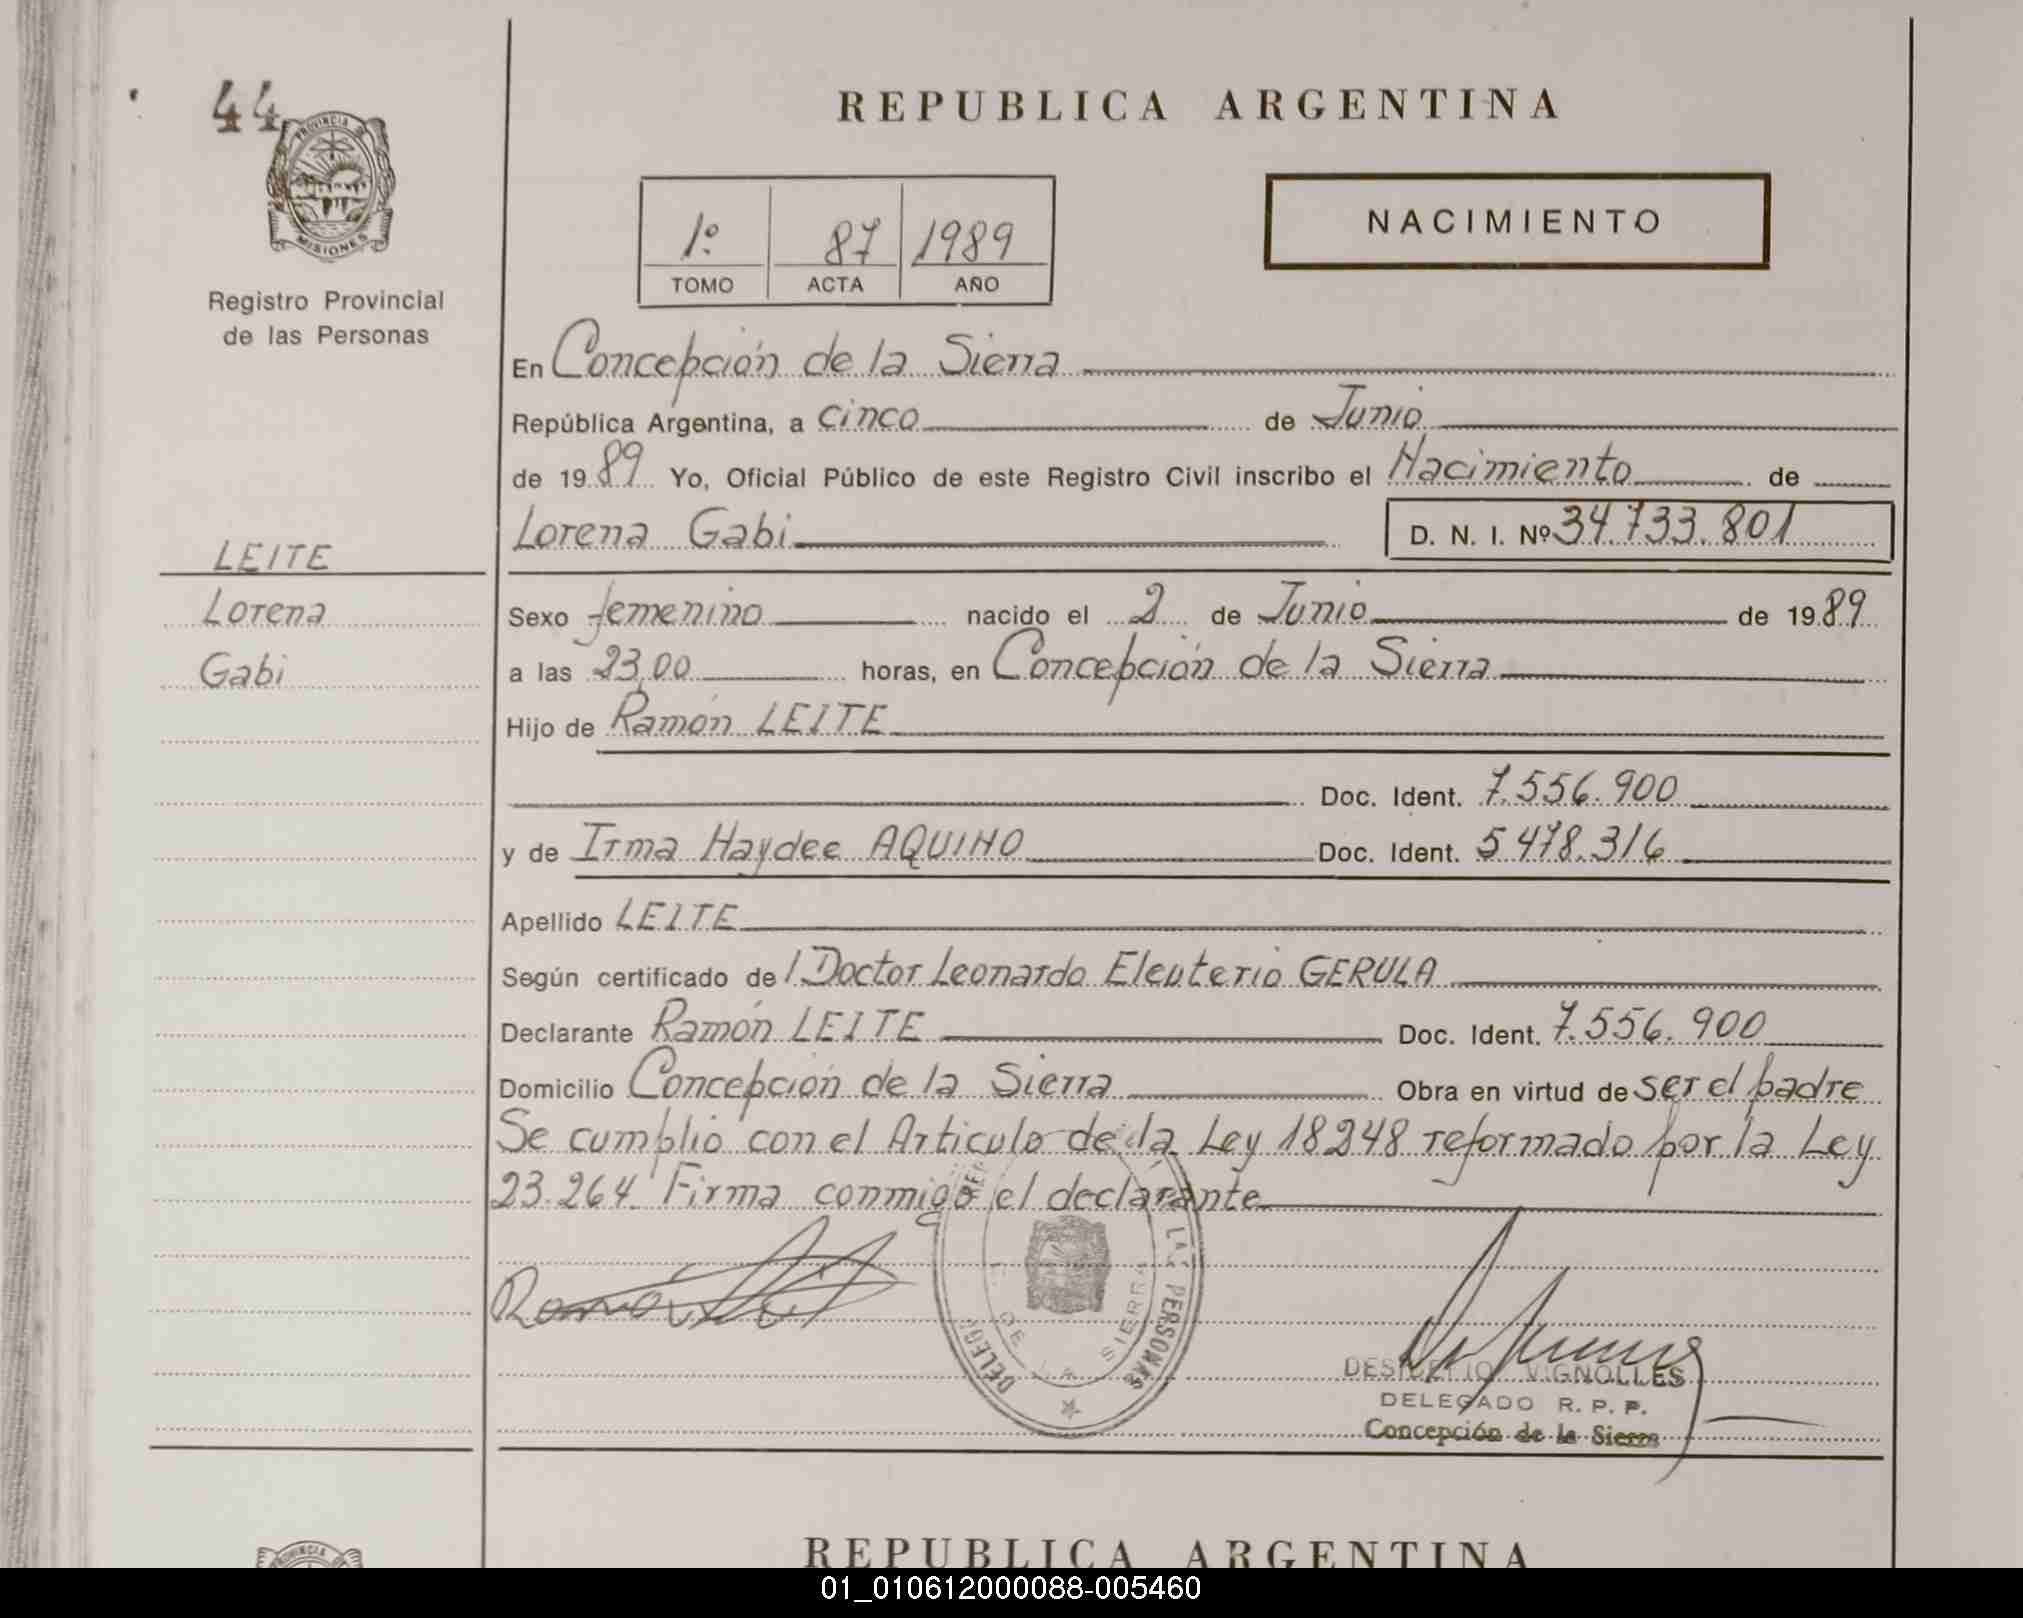 44
REPUBLICA ARGENTINA
PROVINCIA DE
MISIONES
Registro Provincial
de las Personas
1º 87 1989
TOMO ACTA AÑO
NACIMIENTO
En Concepción de la Sierra
República Argentina, a cinco de Junio
de 1989 Yo, Oficial Público de este Registro Civil inscribo el Nacimiento de
Lorena Gabi D. N. I. Nº 34.733.801
LEITE
Lorena
Gabi
Sexo femenino nacido el 2 de Junio de 1989
a las 23,00 horas, en Concepción de la Sierra
Hijo de Ramón LEITE
Doc. Ident. 7.556.900
y de Irma Haydee AQUINO Doc. Ident. 5.478.316
Apellido LEITE
Según certificado de l Doctor Leonardo Eleuterio GERULA
Declarante Ramón LEITE Doc. Ident. 7.556.900
Domicilio Concepción de la Sierra Obra en virtud de ser el padre
Se cumplio con el Articulo de la Ley 18248 reformado por la Ley
23.264. Firma conmigo el declarante
Ramón
LAS PERSONAS
DE LA SIERRA
DESIDERIO VIGNOLLES
DELEGADO R. P. P.
Concepción de la Sierra
PROVINCIA DE
REPUBLICA ARGENTINA
01_010612000088-005460